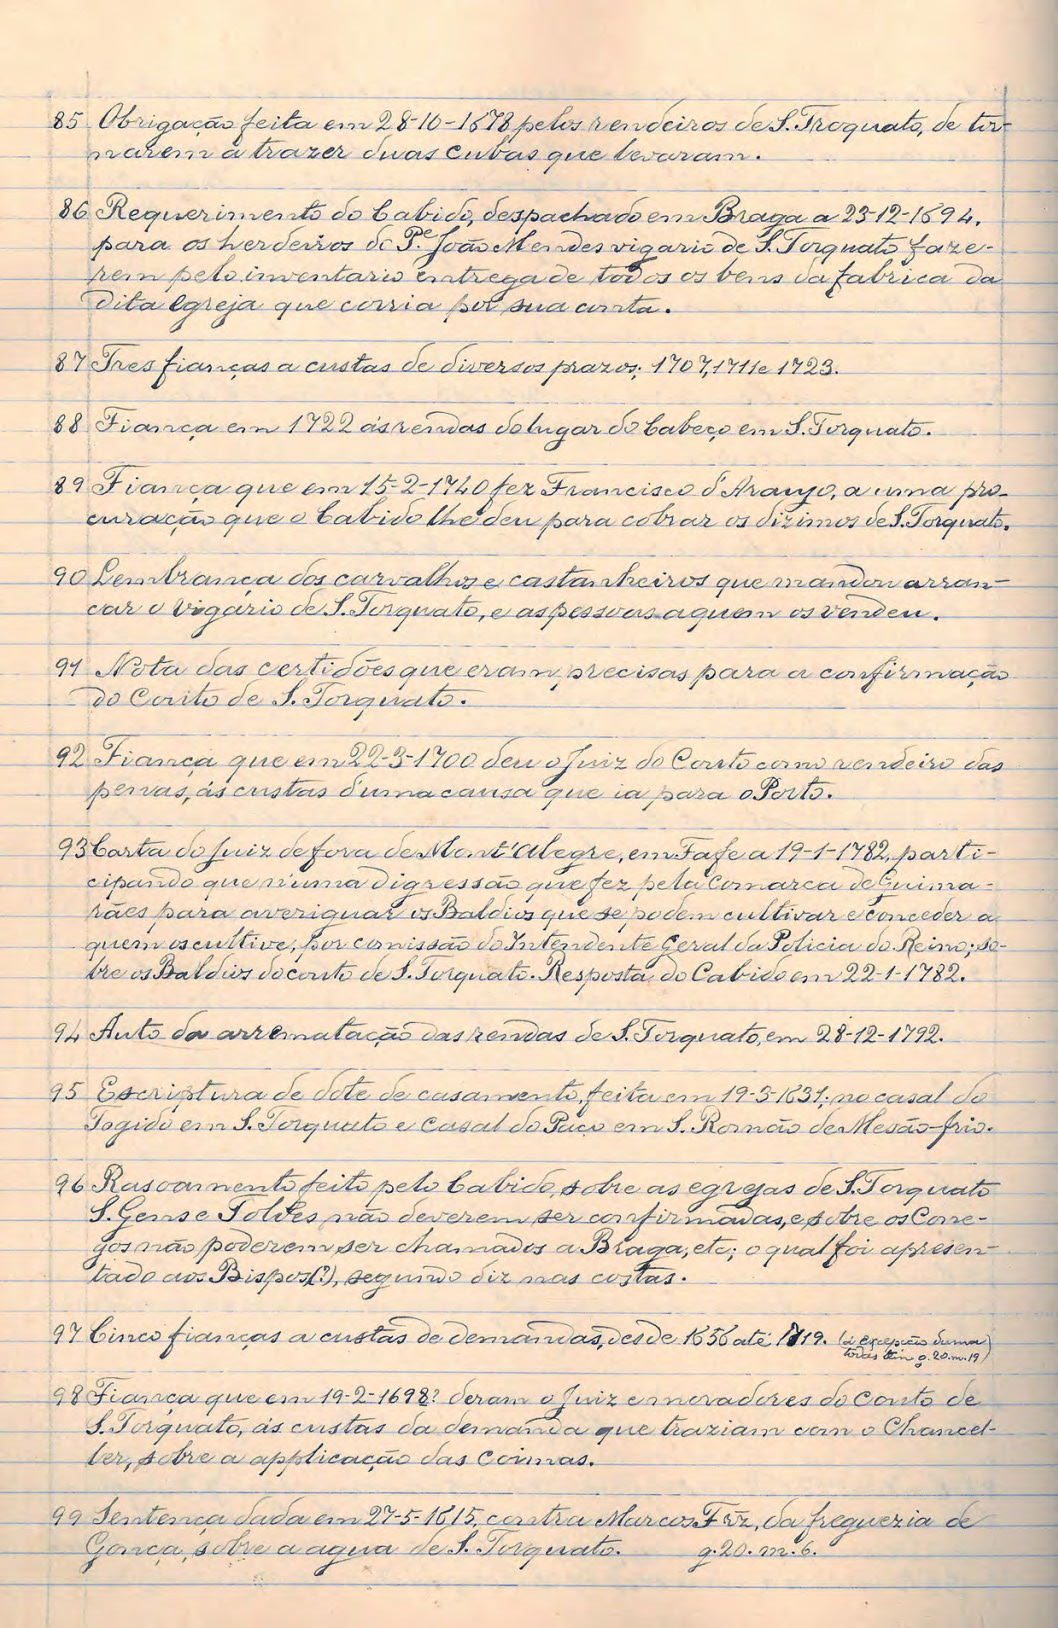 85 Obrigação feita em 28-10-1678 pelos rendeiros de S. Troquato, de tor-
narem a trazer duas cubas que levaram.
86 Requerimento do Cabido, despachado em Braga a 23-12-1694,
para os herdeiros do Pe. João Mendes vigario de S. Torquato faze-
rem pelo inventario entrega de todos os bens da fabrica da
dita Egreja que corria por sua conta.
87 Tres fianças a custas de diversos prazos; 1707, 1711 e 1723.
88 Fiança em 1722 ás rendas do lugar do Cabeço em S. Torquato.
89 Fiança que em 15-2-1740 fez Francisco d'Araujo, a uma pro-
curação que o Cabido lhe deu para cobrar os dizimos de S. Torquato.
90 Lembrança dos carvalhos e castanheiros que mandou arran-
car o vigário de S. Torquato, e as pessoas a quem os vendeu.
91 Nota das certidões que eram precisas para a confirmação
do Couto de S. Torquato.
92 Fiança que em 22-3-1700 deu o Juiz do Couto como rendeiro das
penas, ás custas d'uma causa que ia para o Porto.
93 Carta do Juiz de fora de Mont'Alegre, em Fafe a 19-1-1782, parti-
cipando que n'uma digressão que fez pela Comarca de Guima-
rães para averiguar os Baldios que se podem cultivar e conceder a
quem os cultive, por comissão do Intendente Geral da Policia do Reino; so-
bre os Baldios do couto de S. Torquato. Resposta do Cabido em 22-1-1782.
94 Auto da arrematação das rendas de S. Torquato, em 28-12-1792.
95 Escriptura de dote de casamento, feita em 19-3-1631; no casal do
Togido em S. Torquato e Casal do Paço em S. Romão de Mesão-frio.
96 Rasoamento feito pelo Cabido, sobre as egrejas de S. Torquato
S. Gens e Tolões não deverem ser confirmadas, e sobre os Cone-
gos não poderem ser chamados a Braga, etc; o qual foi apresen-
tado aos Bispos(?), segundo diz nas costas.
97 Cinco fianças a custas de demandas, desde 1656 até 1719. (á excepção duma
todas têm g. 20. m. 19)
98 Fiança que em 19-2-1698? deram o Juiz e moradores do Couto de
S. Torquato, ás custas da demanda que traziam com o Chancel-
ler, sobre a applicação das coimas.
99 Sentença dada em 27-5-1615, contra Marcos Frz, da freguezia de
Gonça, sobre a agua de S. Torquato. g. 20. m. 6.